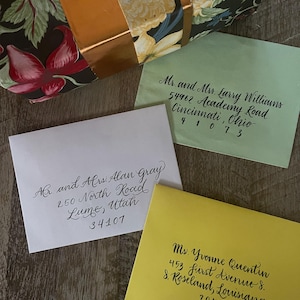 Mr and Mrs Larry Williams
54912 Academy Road
Cincinnati, Ohio
41073
Mr and Mrs Alan Gray
250 North Road
Lume, Utah
34107
Ms Yvonne Quentin
453 First Avenue S.
S. Roseland, Louisiana